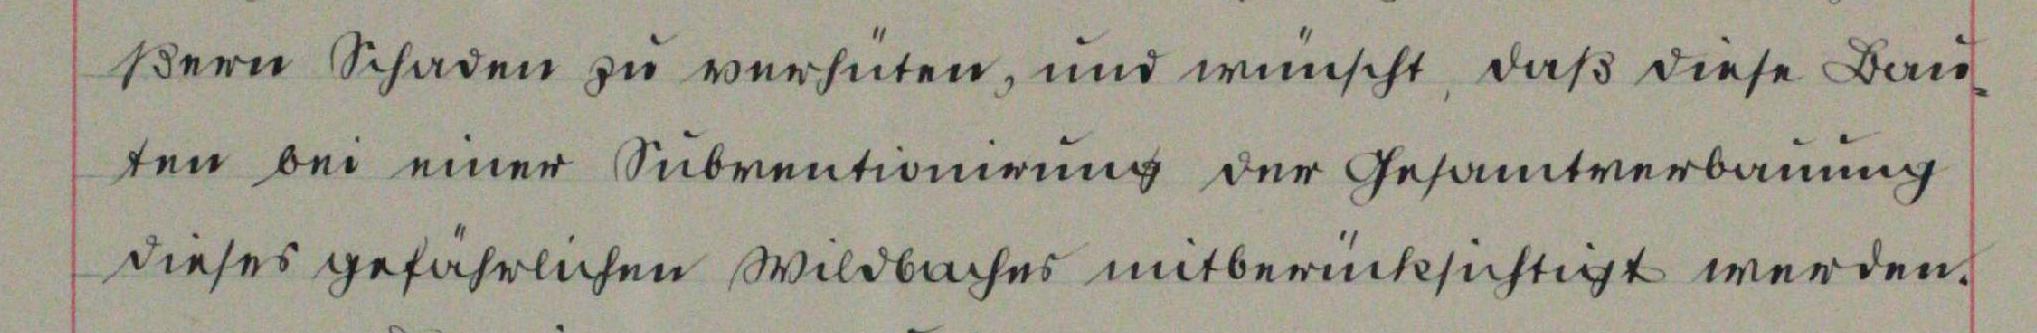 ßern Schaden zu verhüten, und wünscht, daß diese Bau-
ten bei einer Subventionirung der Gesamtverbauung
dieses gefährlichen Wildbaches mitberücksichtigt werden.